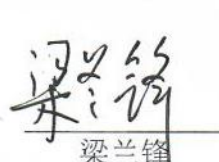 梁兰锋
梁兰锋